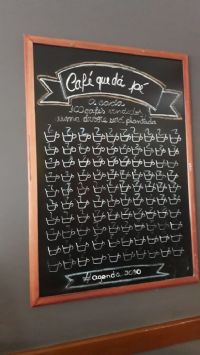 Café que dá pé
a cada
160 cafés vendidos,
uma árvore será plantada
#agenda2030